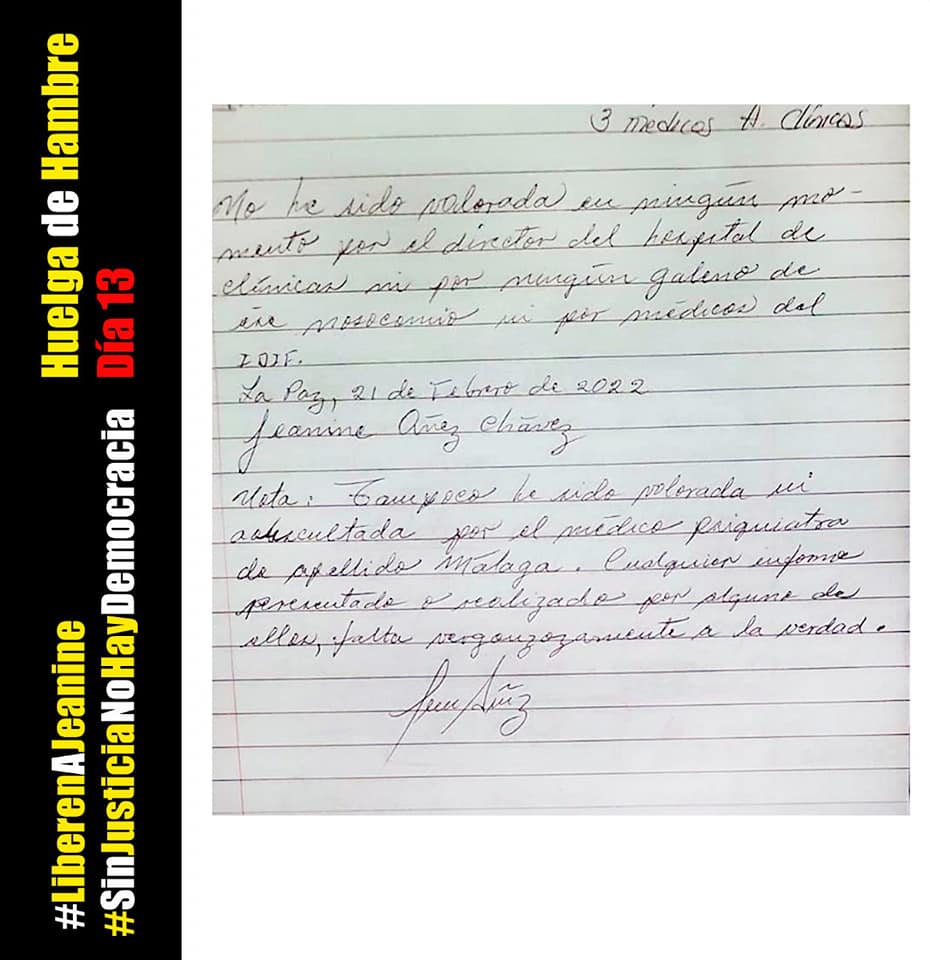 Huelga de Hambre
Día 13
#LiberenAJeanine
#SinJusticiaNoHayDemocracia
3 médicos H. Clínicas
No he sido valorada en ningún mo-
mento por el director del hospital de
clínicas ni por ningún galeno de
ese nosocomio ni por médicos del
IDIF.
La Paz, 21 de Febrero de 2022
Jeanine Añez Chávez
Nota: Tampoco he sido valorada ni
auscultada por el médico psiquiatra
de apellido Málaga. Cualquier informe
presentado o realizado por alguno de
ellos, falta vergonzozamente a la verdad.